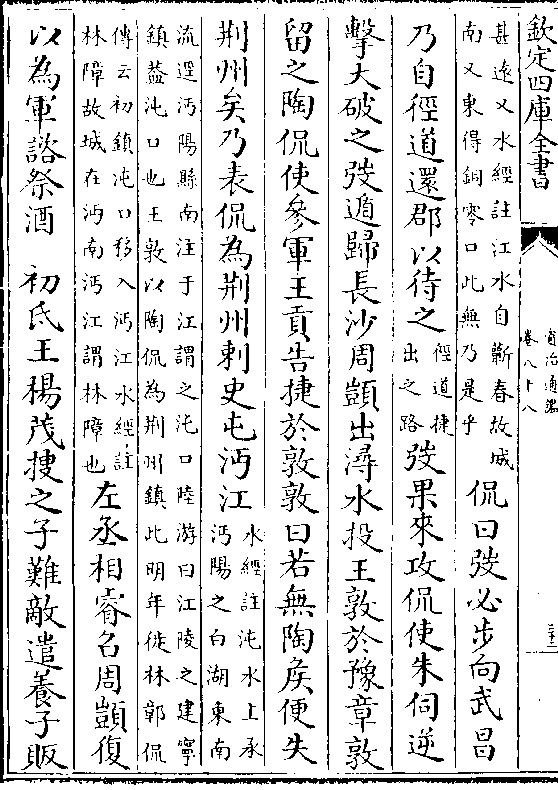 欽定四庫全書
資治通鑑
卷八十八
三十三
甚遠又水經註江水自蘄春故城
南又東得銅零口此無乃是乎
侃曰弢必步向武昌
乃自徑道還郡以待之徑道捷出之路弢果來攻侃使朱伺逆
擊大破之弢遁歸長沙周顗出潯水投王敦於豫章敦
留之陶侃使參軍王貢告捷於敦敦曰若無陶侯便失
荆州矣乃表侃為荆州刺史屯沔江
水經註沌水上承
沔陽之白湖東南
流逕沔陽縣南注于江謂之沌口陸游曰江陵之建寧
鎮葢沌口也王敦以陶侃為荆州鎮此明年徙林鄣侃
傳云初鎮沌口移入沔江水經註
林障故城在沔南沔江謂林障也
左丞相睿召周顗復
以為軍諮祭酒 初氐王楊茂搜之子難敵遣養子販